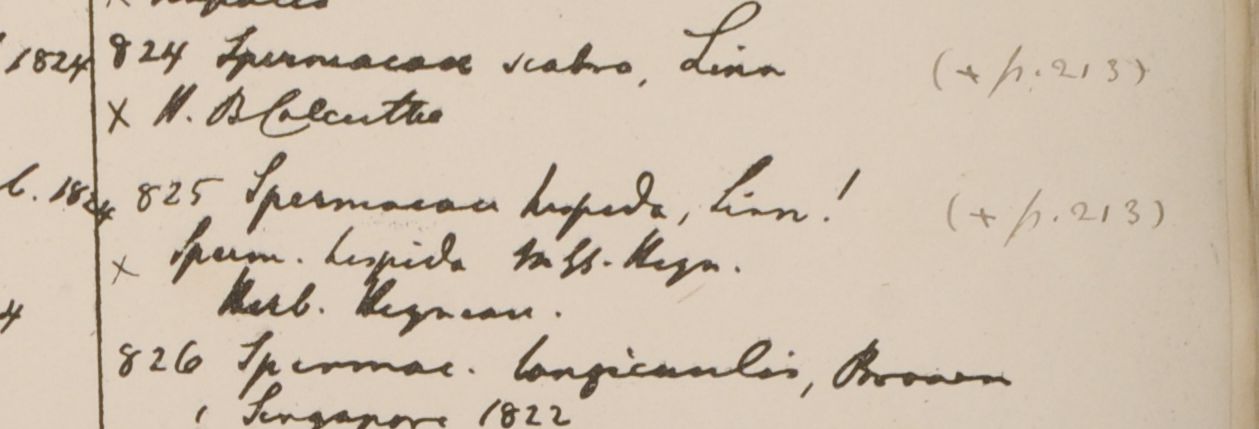 1824 824 Spermacoce scabra, Linn (x p. 213)
x H. B Calcutta
b. 1824 825 Spermacoce hispida, Linn! (x p. 213)
x Sperm. hispida Mss. Heyn.
4 Herb. Heyneau.
826 Spermac. longicaulis, Brown
Singapore 1822